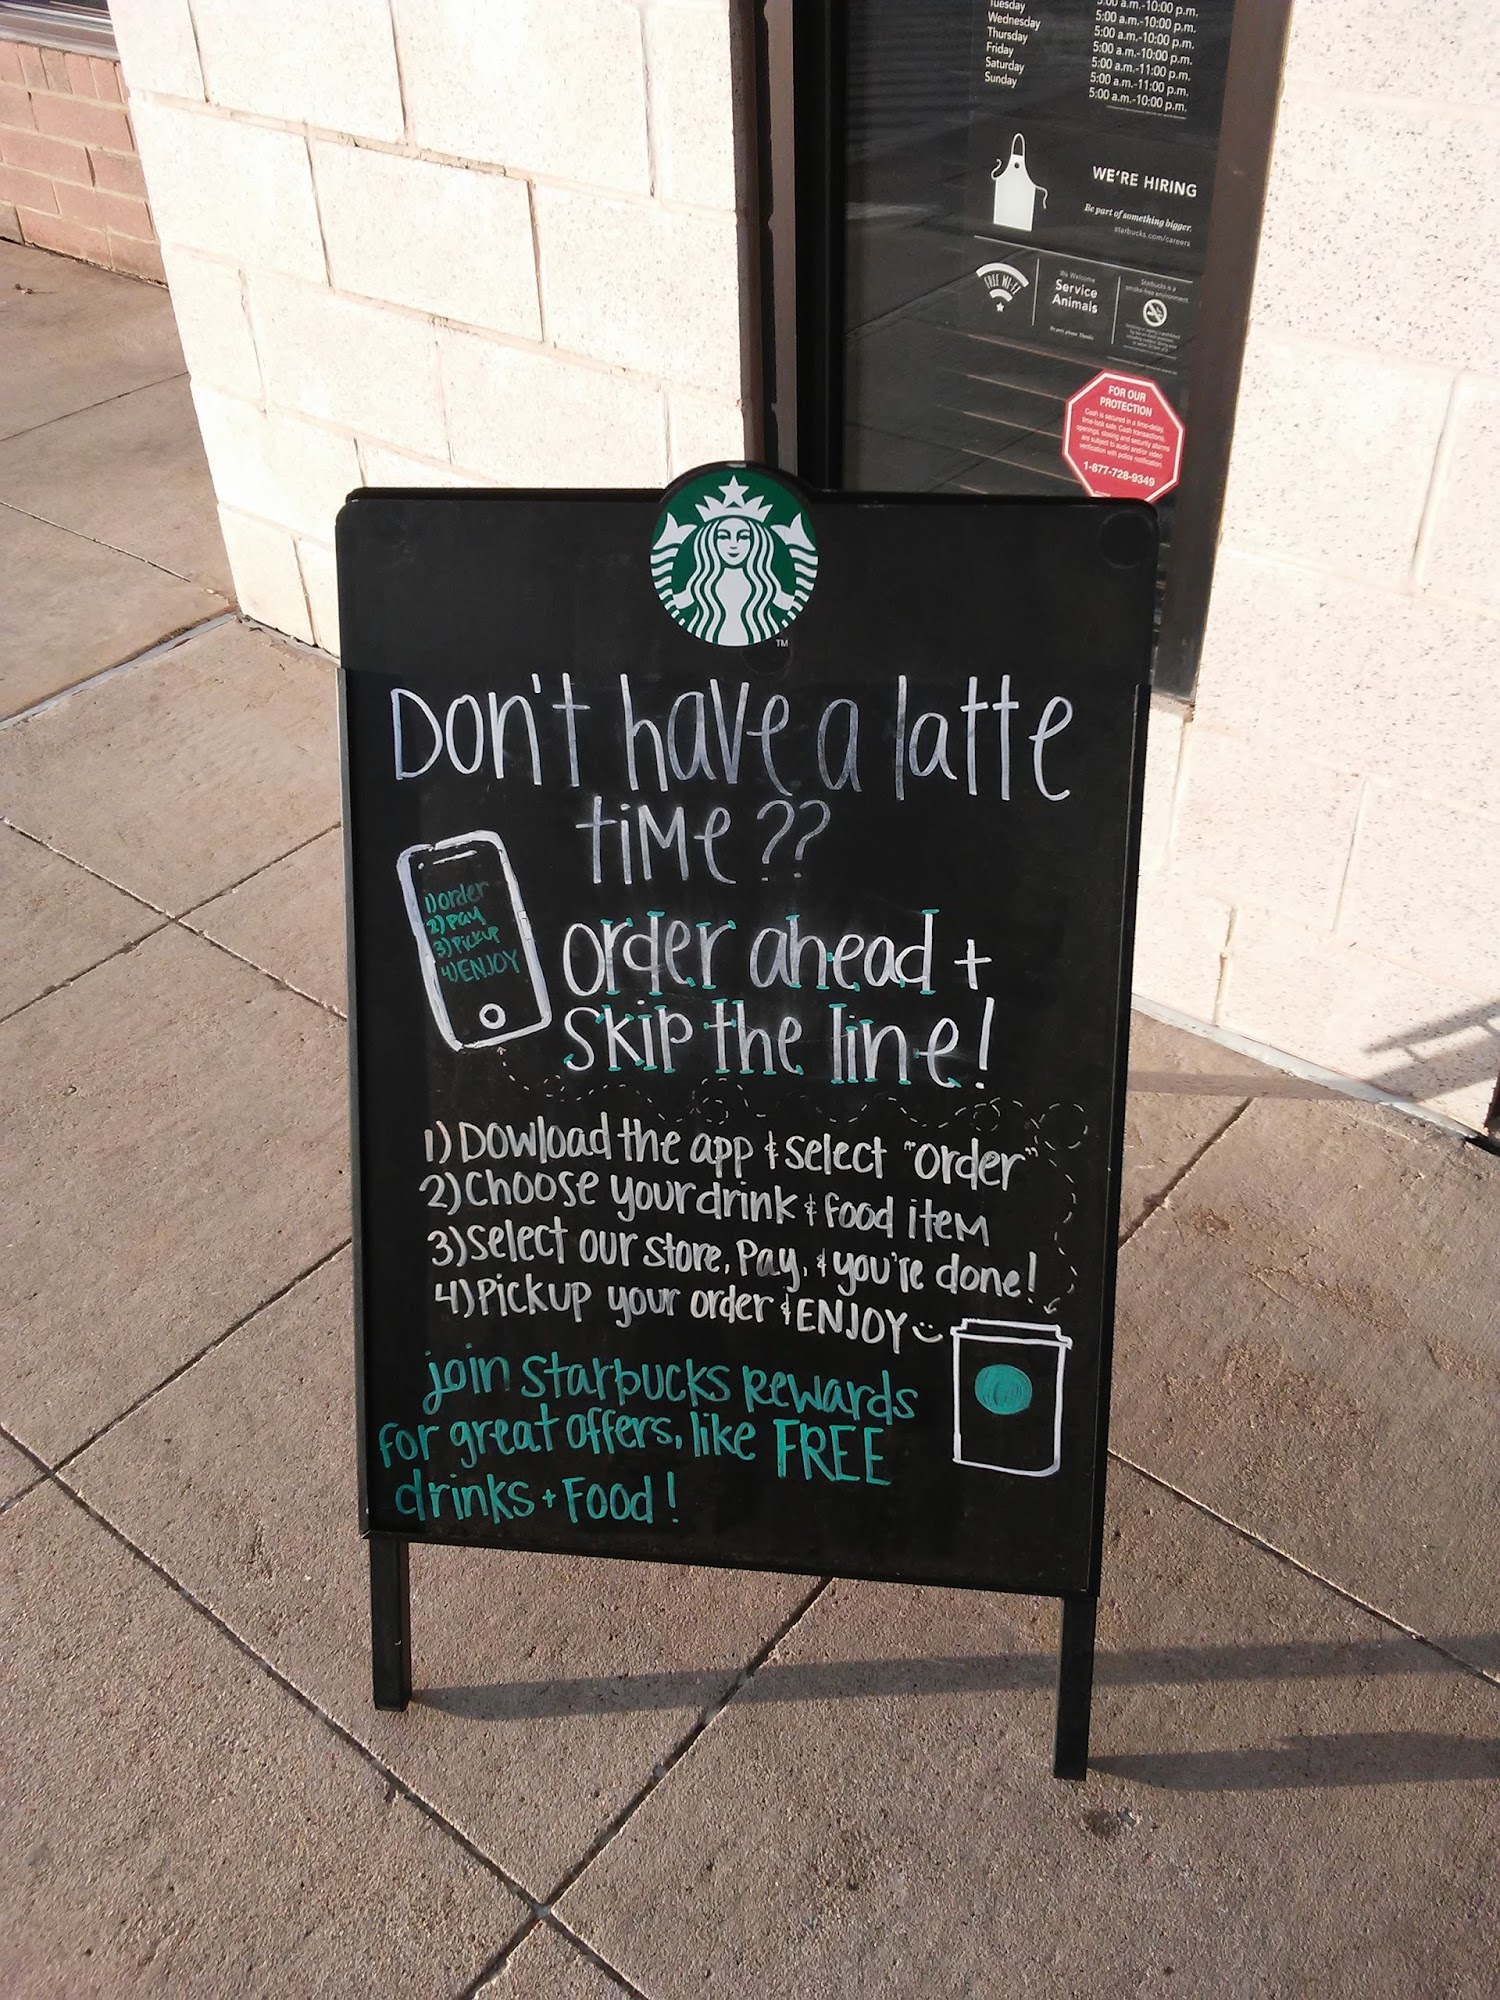 Tuesday 5:00 a.m.-10:00 p.m.
Wednesday 5:00 a.m.-10:00 p.m.
Thursday 5:00 a.m.-10:00 p.m.
Friday 5:00 a.m.-11:00 p.m.
Saturday 5:00 a.m.-11:00 p.m.
Sunday 5:00 a.m.-10:00 p.m.
WE'RE HIRING
Be part of something bigger.
starbucks.com/careers
FREE WI-FI
We Welcome
Service
Animals
No pets please. Thanks.
Starbucks is a
smoke-free environment
FOR OUR
PROTECTION
Cash is secured in a time-delay,
time-lock safe. Cash transactions,
openings, closing and security alarms
are subject to audio and/or video
verification with police notification.
1-877-728-9349
TM
Don't have a latte
time??
1) order
2) pay
3) Pickup
4) ENJOY
order ahead +
skip the line!
1) Dowload the app & select "order"
2) Choose your drink & food item
3) Select our store, Pay, & you're done!
4) Pickup your order & ENJOY
join Starbucks Rewards
for great offers, like FREE
drinks + Food!